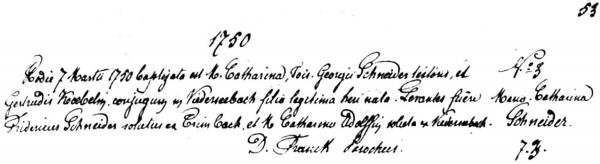 53
1750
Hodie 7 Martii 1750 baptizata est M. Catharina, Jois Georgii Schneider textoris, et
Gertrudis Koebelin, conjugum ex Niederseelbach filia legitima heri nata. Levantes fuere
Fridericus Schneider solutus ex et M. Catharina soluta ex Niederseelbach.
D. Franck Parochus.
No 3
Maria Catharina
Schneider.
7. 3.